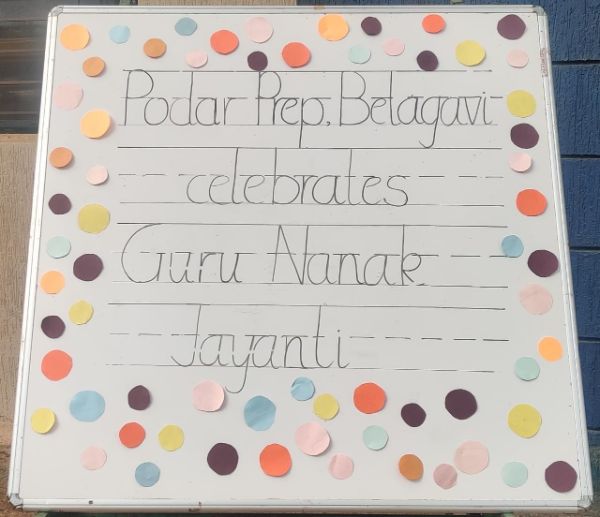 Podar Prep, Belagavi
celebrates
Guru Nanak
Jayanti